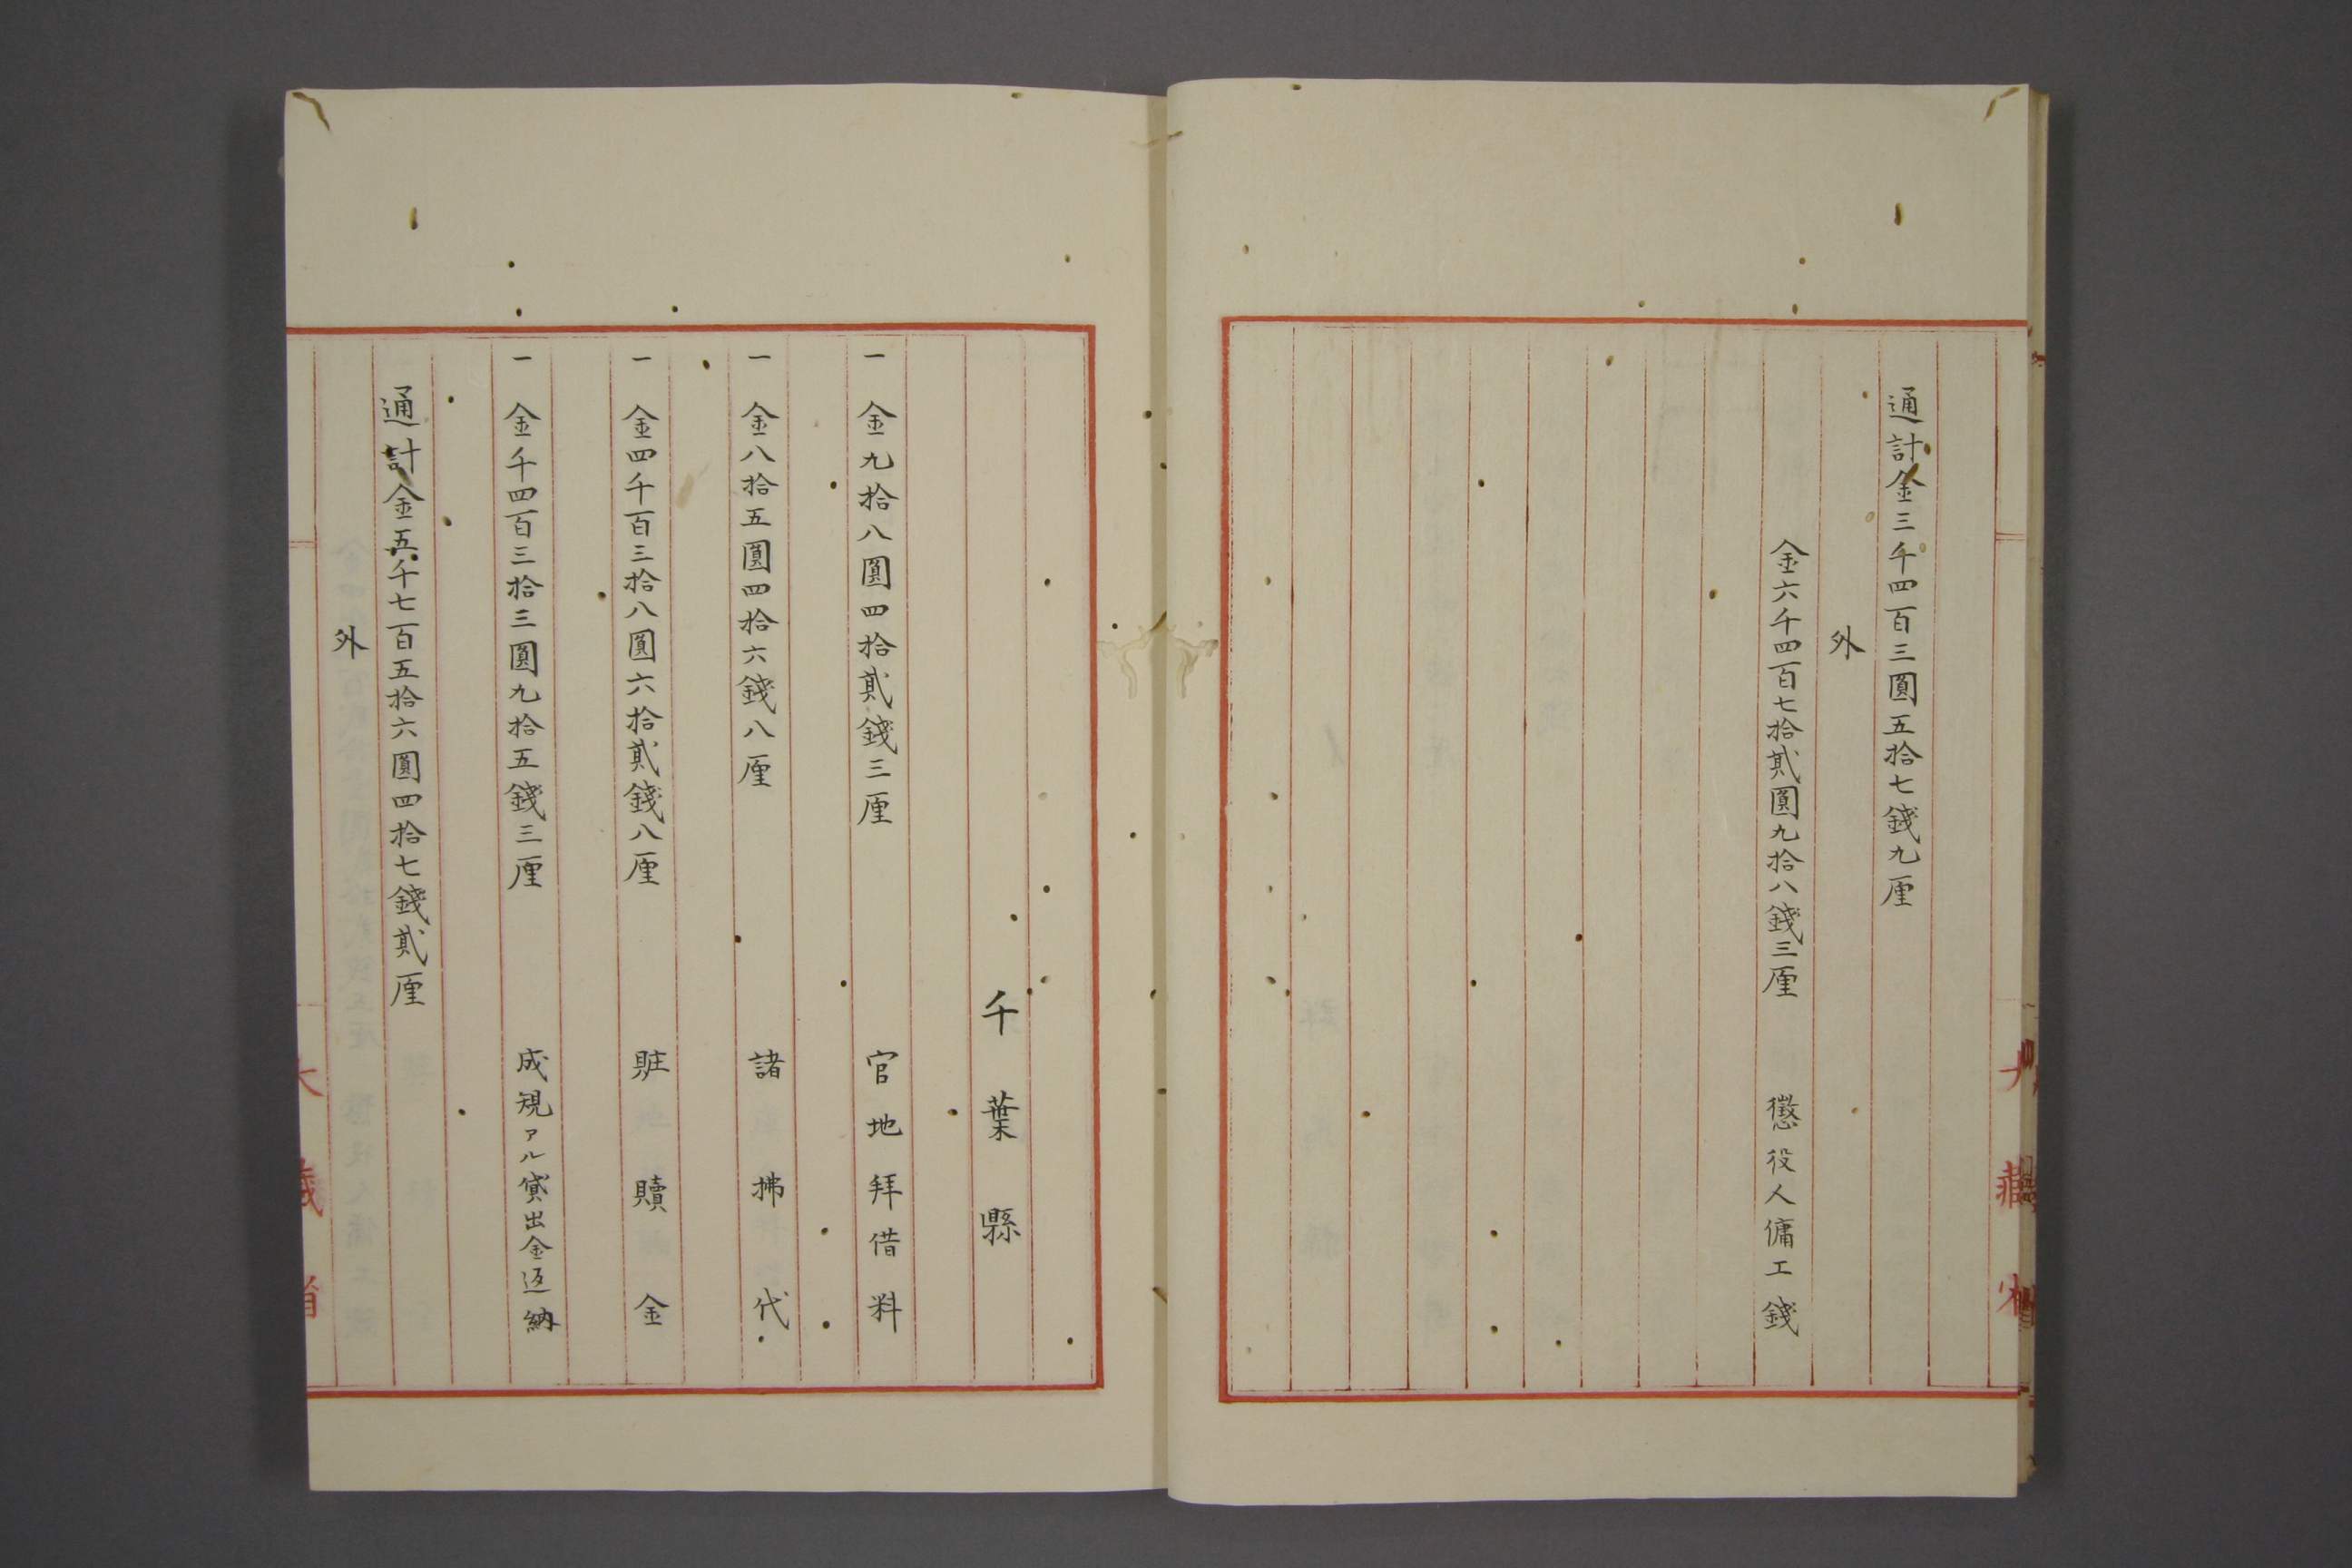 通計金三千四百三圓五拾七錢九厘
外
金六千四百七拾貳圓九拾八錢三厘 懲役人傭工錢
千葉縣
一 金九拾八圓四拾貳錢三厘 官地拜借料
一 金八拾五圓四拾六錢八厘 諸拂代
一 金四千百三拾八圓六拾貳錢八厘 賍贖金
一 金千四百三拾三圓九拾五錢三厘 成規アル貸出金返納
通計金五千七百五拾六圓四拾七錢貳厘
外